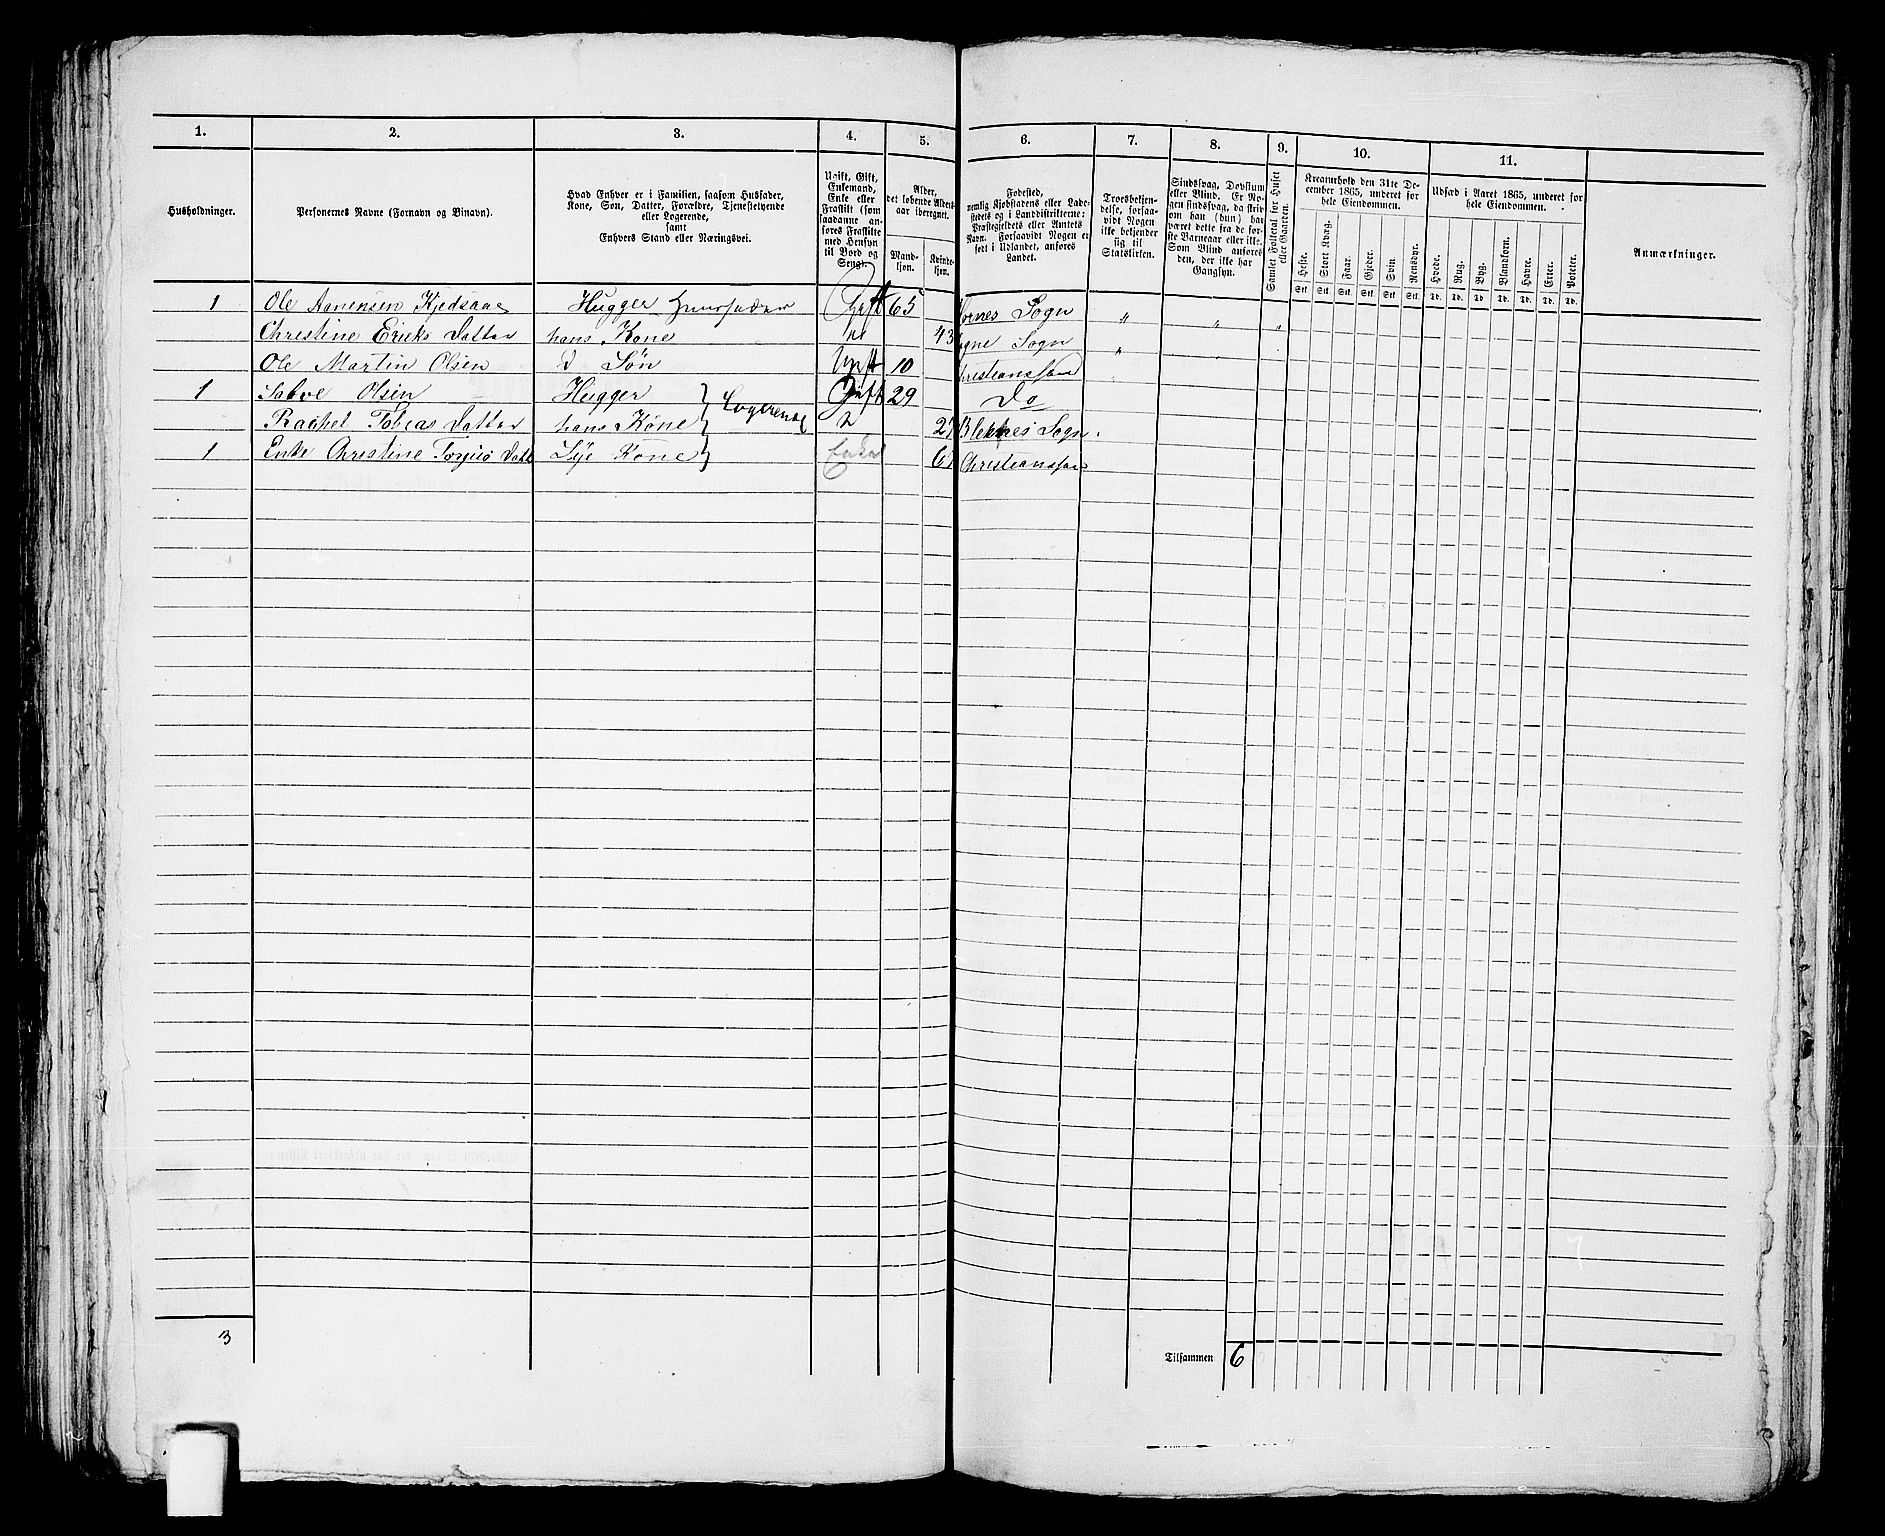 1. 2. 3. 4. 5. 6. 7. 8. 9. 10. 11.
Husholdninger.
Personernes Navne (Fornavn og Binavn).
Hvad Enhver er i Familien, saasom Husfader,
Kone, Søn, Datter, Forældre, Tjenestetyende
eller Logerende,
samt
Enhvers Stand eller Næringsvei.
Ugift, Gift,
Enkemand,
Enke eller
Fraskilt (som
saadanne an-
føres Fraskilte
med Hensyn
til Bord og
Seng).
Alder,
det løbende Alders-
aar iberegnet.
Mand-
kjøn.
Kvinde-
kjøn.
Fødested,
nemlig Kjøbstadens eller Lade-
stedets og i Landdistrikterne:
Præstegjeldets eller Amtets
Navn. Forsaavidt Nogen er
født i Udlandet, anføres
Landet.
Troesbekjen-
delse, forsaa-
vidt Nogen
ikke bekjender
sig til
Statskirken.
Sindssvag, Døvstum
eller Blind. Er No-
gen sindssvag, da skriv
om han (hun) har
været dette fra de før-
ste Barneaar eller ikke.
Som Blind anføres
den, der ikke har
Gangsyn.
Samlet Folketal for Huset
eller Gaarden.
Kreaturhold den 31te De-
cember 1865, underet for
hele Eiendommen.
Heste. Stort Kvæg. Faar. Gjeder. Svin. Rensdyr.
Stk. Stk. Stk. Stk. Stk. Stk.
Udsæd i Aaret 1865, underet for
hele Eiendommen.
Hvede. Rug. Byg. Blandkorn. Havre. Erter. Poteter.
Td. Td. Td. Td. Td. Td. Td.
Anmærkninger.
1 Ole Aanensen Kjedsaae Hugger Huusfader Gift 65 Sogn " " "
Christine Ericks Datter hans Kone 43 Sogn "
Ole Martin Olsen Søn Ugift 10 Christianssand
1 Salve Olsen Hugger Logerende Gift 29 Do
Rachel Tobias Datter hans Kone Sogn
1 Enke Christine Datt Kone Enke Christianssand
3
Tilsammen 6